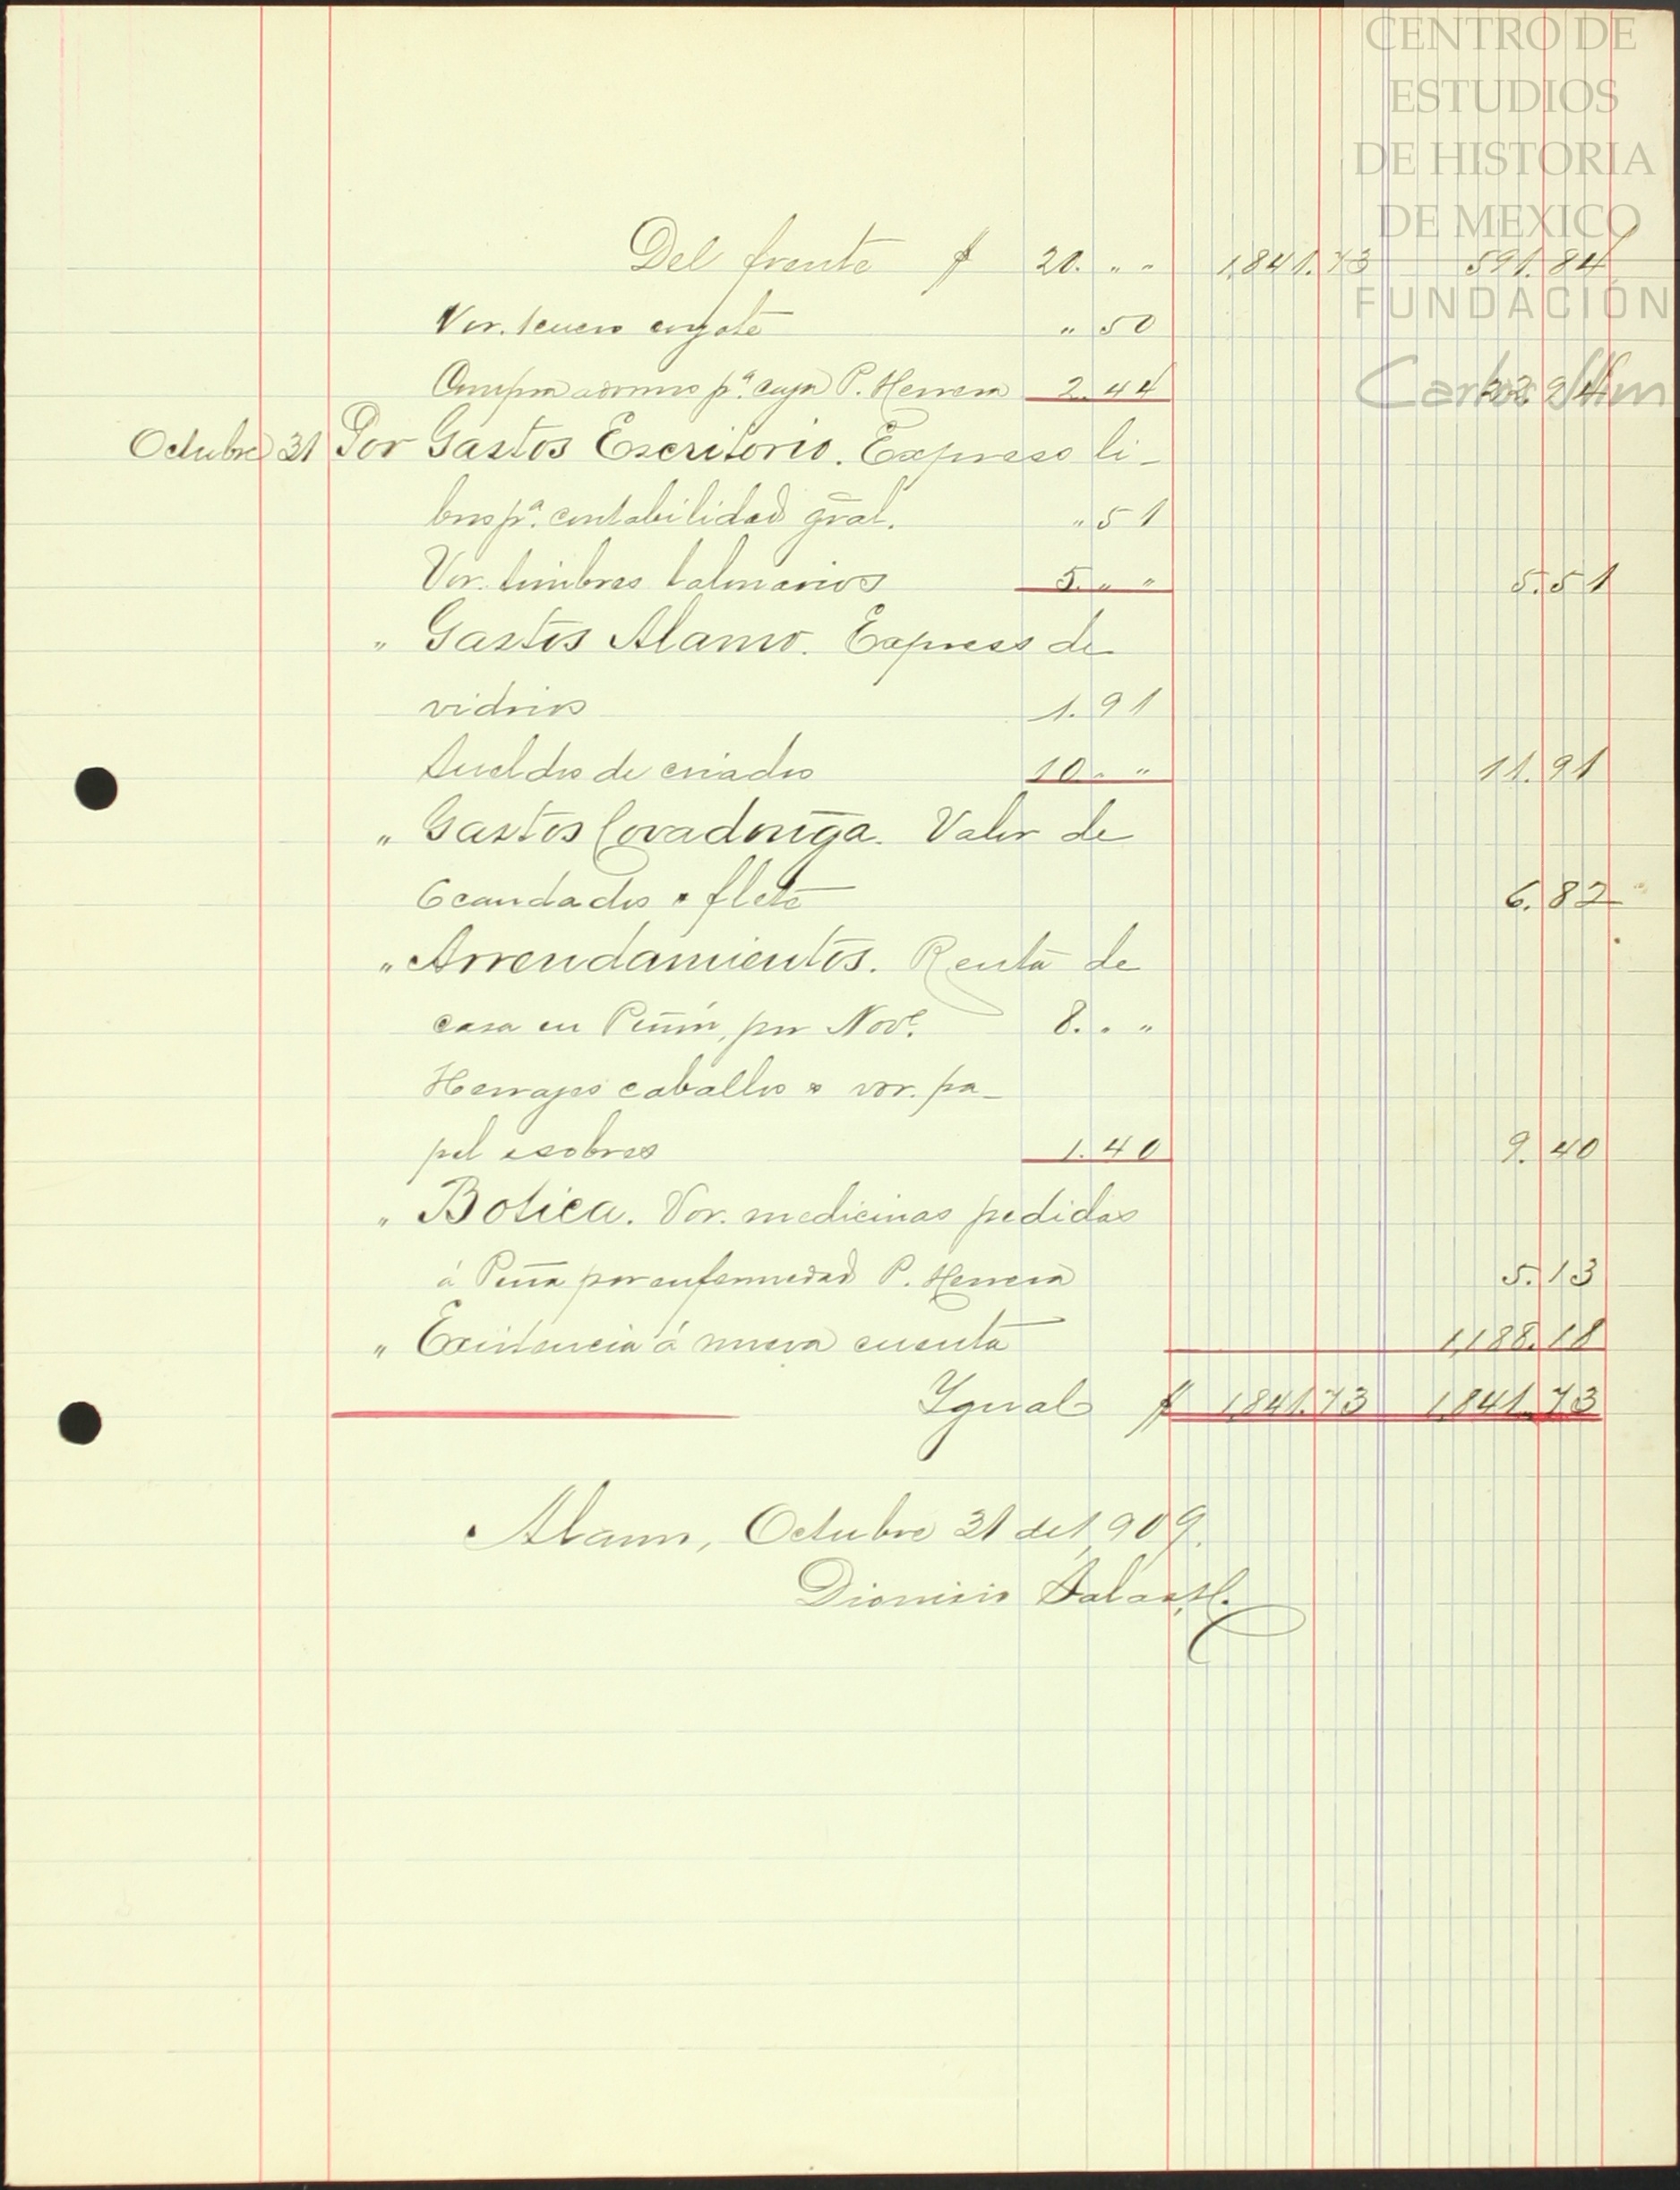 CENTRO DE
ESTUDIOS
DE HISTORIA
DE MEXICO
FUNDACIÓN
Carlos Slim
Del frente $ 20. " " 1,841.73 591.84
Vor. 1 cuero coyote " 50
Compra adornos pª. caja P. Herrera 2.44 22.94
Octubre 31 Por Gastos Escritorio. Expreso li-
bros pª. contabilidad gral. " 51
Vor. timbres talonarios 5. " " 5.51
" Gastos Alamo. Express de
vidrios 1.91
Sueldos de criados 10. " 11.91
" Gastos Covadonga. Valor de
6 candados flete 6.82
" Arrendamientos. Renta de
casa en Piñón, por Nove. 8. " "
Herrajes caballos vor. pa-
pel sobres 1.40 9.40
" Botica. Vor. medicinas pedidas
á Peña por enfermedad P. Herrera 5.13
" Existencia á nueva cuenta 1,188.18
Ygual $ 1,841.73 1,841.73
Alamo, Octubre 31 de 1,909.
Dionisio Salas H.